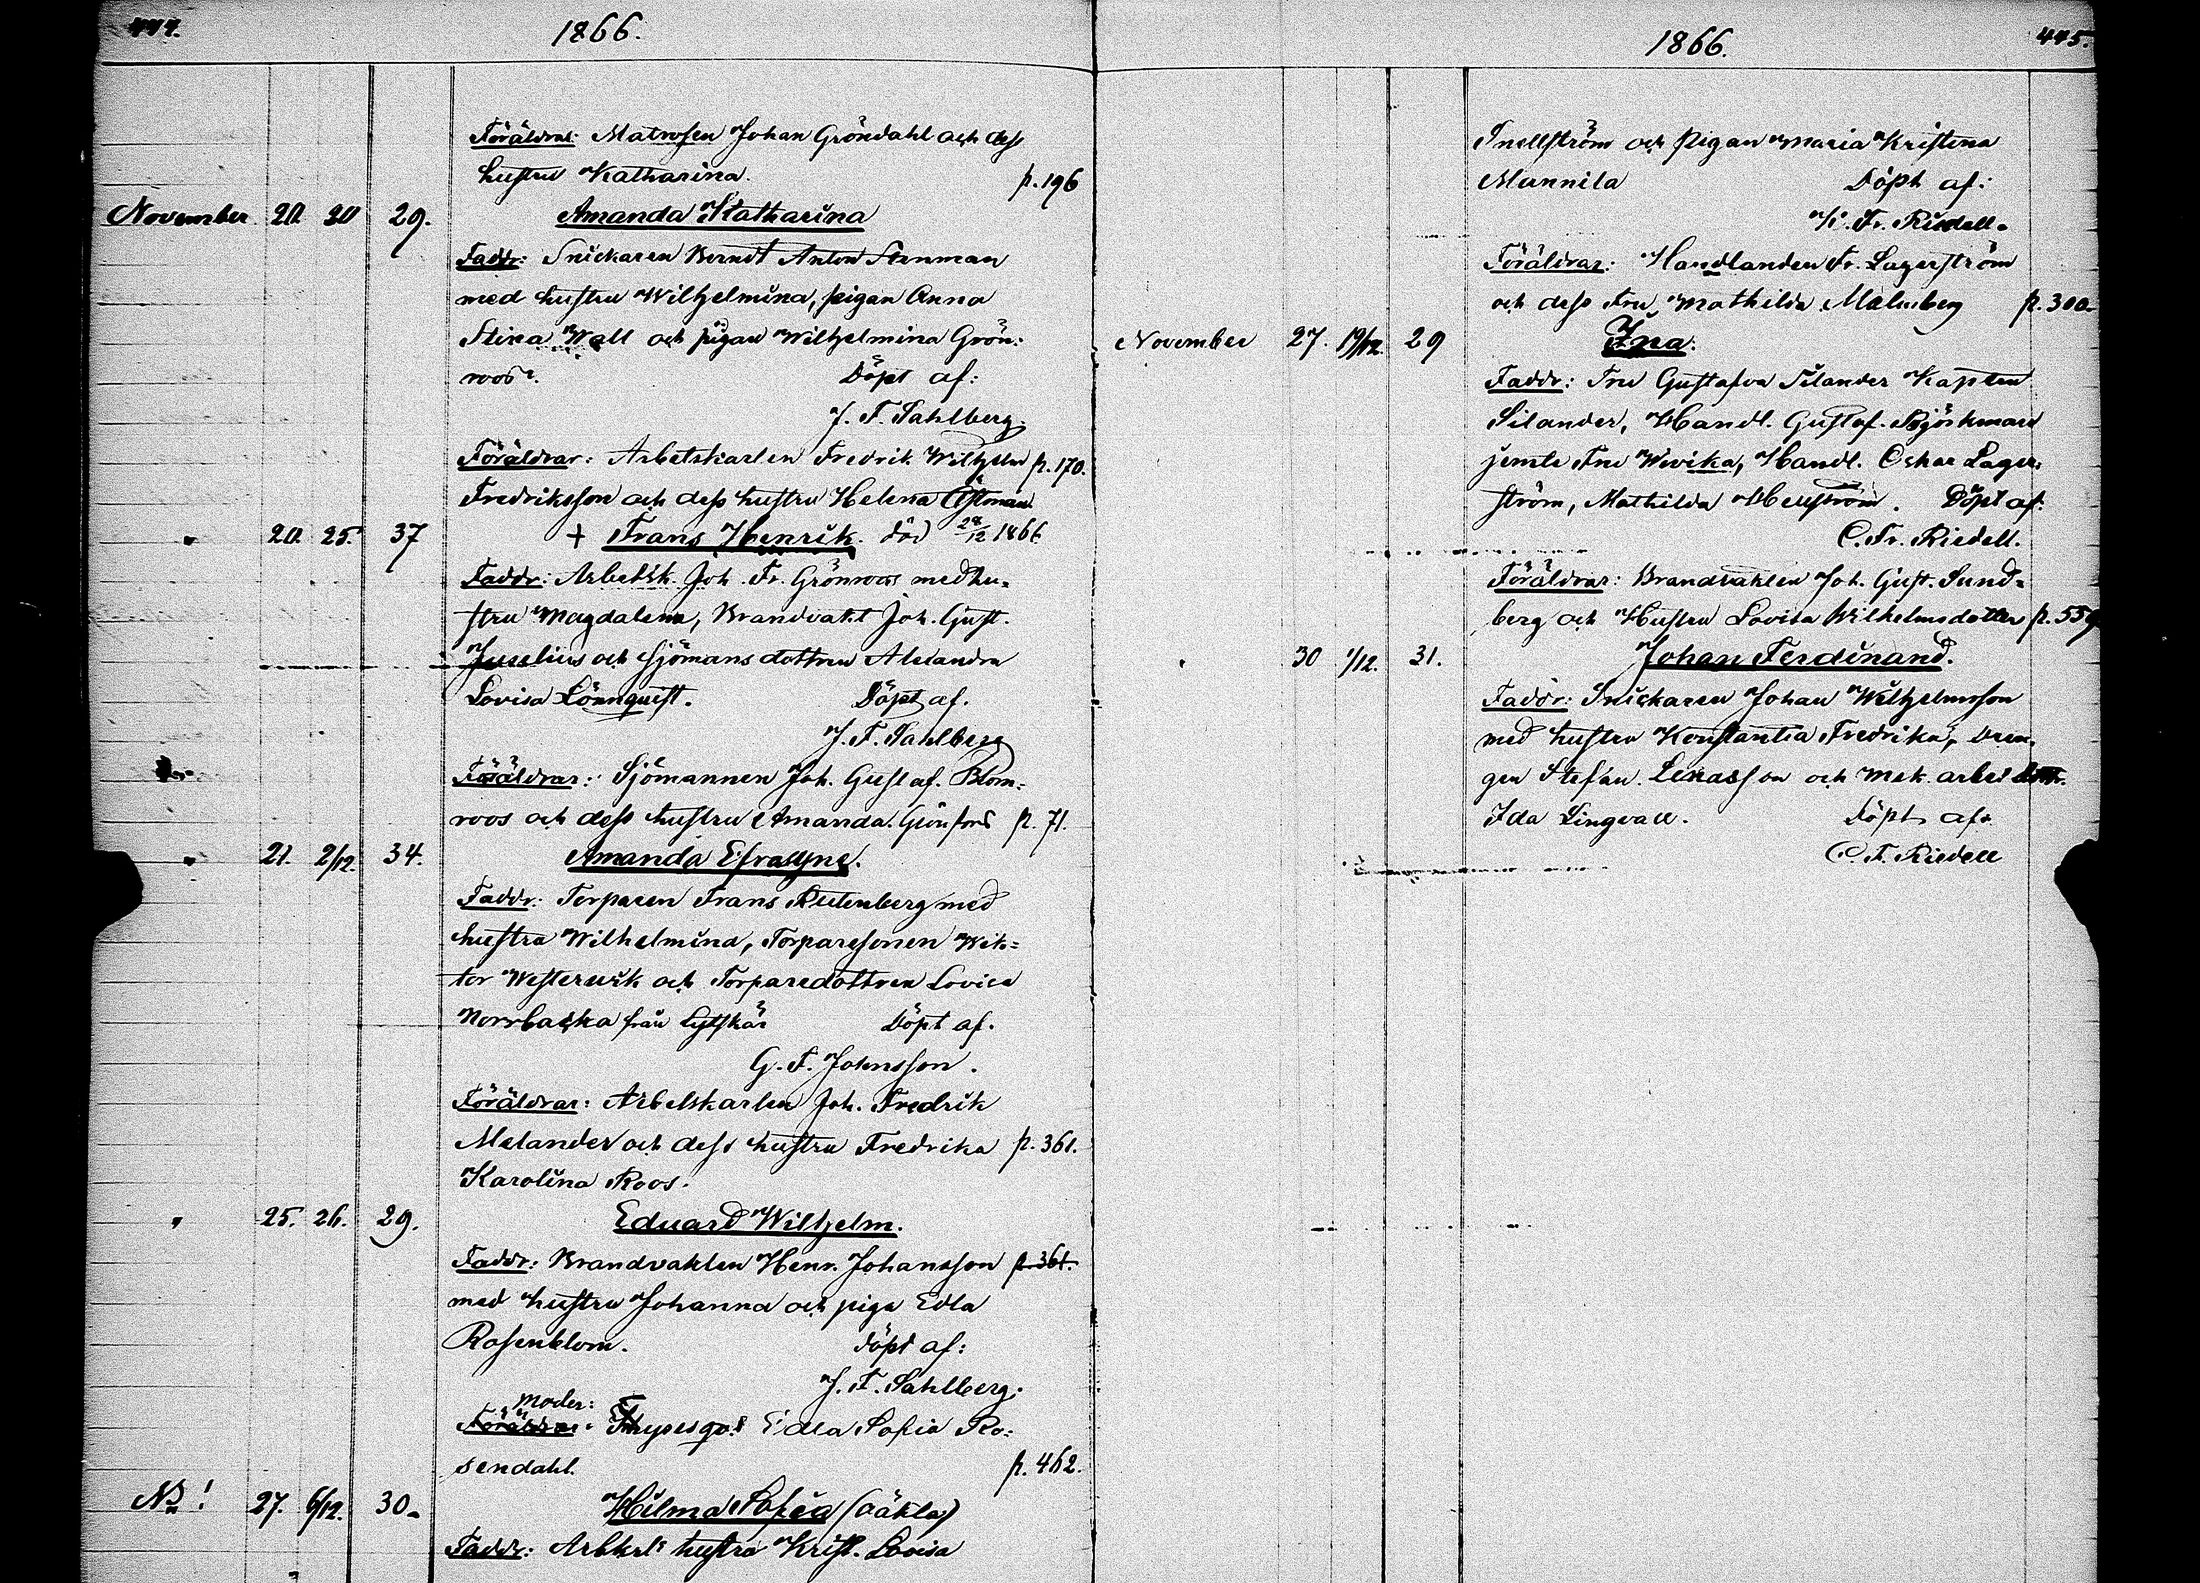 444.
1866.
Föräldrar: Matrosen Johan Gröndahl och dess
hustru Katharina. p. 196
November 20. 20 29. Amanda Katharina
Faddr: Snickaren Berndt Anton Stenman
med hustru Wilhelmina, pigan Anna
Stina Wall och pigan Wilhelmina Grön:
roos. Döpt af:
J. F. Sahlberg.
Föräldrar: Arbetskarlen Fredrik Wilhelm p. 170.
Fredriksson och dess hustru Helena Östman
" 20. 25. 37 + Frans Henrik. död 28/12 1866.
Faddr: Arbetsk. Joh. Fr. Grönroos med hu-
stru Magdalena, Brandvakt Joh. Gust.
Juselius och sjömans dottren Alexandra
Lovisa Lönnquist. Döpt af.
J. F. Sahlberg
Föräldrar: Sjömannen Joh. Gustaf. Blom-
roos och dess hustru Amanda Grönfors p. 71.
" 21. 2/12. 34. Amanda Efrosyne.
Faddr: Torparen Frans Rutenberg med
hustru Wilhelmina, Torparesonen Wik=
tor Westerwik och Torparedottren Lovisa
Norrbacka från Lytskär Döpt af.
G. F. Johnsson.
Föräldrar: Arbetskarlen Joh. Fredrik
Melander och dess hustru Fredrika p. 361.
Karolina Roos.
" 25. 26. 29. Eduard Wilhelm.
Faddr: Brandvakten Henr. Johansson p. 361.
med hustru Johanna och piga Edla
Rosenblom. döpt af:
J. F. Sahlberg.
Moder:
Föräldrar: Edla Sofia Ro:
sendahl. p. 462.
NB! 27. 6/12. 30. Hilma Sofia (oäkta)
Faddr: Arbkrls hustru Krist. Lovisa
1866.
445.
Snellström och Pigan Maria Kristina
Mannila Döpt af:
C. Fr. Riedell.
Föräldrar: Handlanden Fr. Lagerström
och dess Fru Mathilda Malmberg p. 300.
November 27. 19/12. 29 Ina.
Faddr: Fru Gustafva Silander Kapten
Silander, Handl. Gustaf. Björkman
jemte Fru Wivika, Handl. Oskar Lager:
ström, Mathilda Hellström. Döpt af:
C. Fr. Riedell.
Föräldrar: Brandvakten Joh. Gust. Sund-
berg och Hustru Lovisa Wilhelmsdotter p. 559
" 30 1/12. 31. Johan Ferdinand.
Faddr: Snickaren Johan Wilhelmsson
med hustru Konstantia Fredrika, Dren-
gen Stefan Lukasson och mek. arbet.
Ida Lingvall. Döpt af:
C. F. Riedell